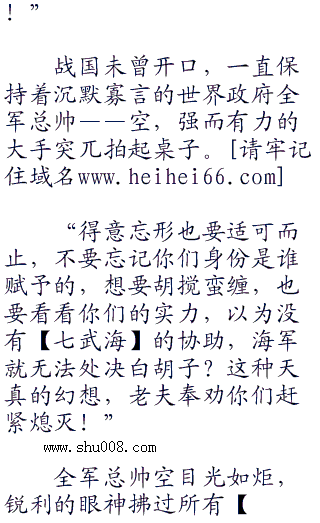 ！”
战国未曾开口，一直保
持着沉默寡言的世界政府全
军总帅——空，强而有力的
大手突兀拍起桌子。[请牢记
住域名www.heihei66.com]
“得意忘形也要适可而
止，不要忘记你们身份是谁
赋予的，想要胡搅蛮缠，也
要看看你们的实力，以为没
有【七武海】的协助，海军
就无法处决白胡子？这种天
真的幻想，老夫奉劝你们赶
紧熄灭！”
www.shu008.com
全军总帅空目光如炬，
锐利的眼神拂过所有【